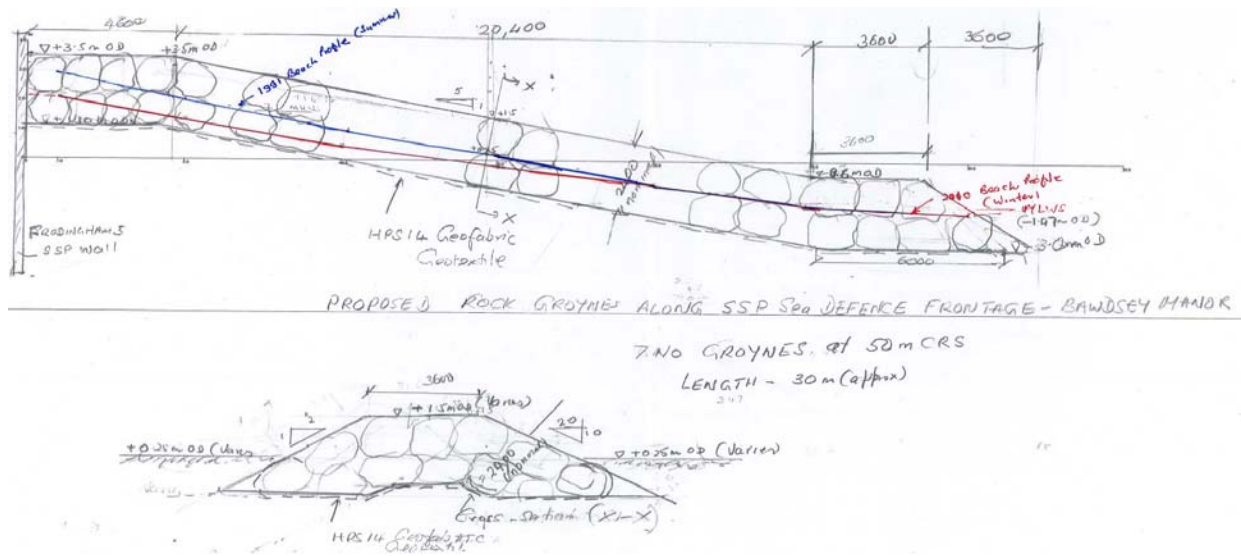 4600
20,400
3600
3600
+3.5m OD
+3.5m OD
1991 Beach Profile (Summer)
5
1
X
+1.5
3600
2000
nominal
Beach Profile
(Winter)
(-1.47m OD)
X
6000
SSP Wall
HPS14 Geofabric
Geotextile
PROPOSED ROCK GROYNES ALONG SSP Sea DEFENCE FRONTAGE - BAWDSEY MANOR
7 NO GROYNES at 50m CRS
LENGTH - 30m (approx)
3600
+1.5m OD (Varies)
2
1
20
10
+0.25m OD (Varies
+0.25m OD (Varies)
2000
Cross-section (X-X)
HPS14 Geofabric
Geotextil